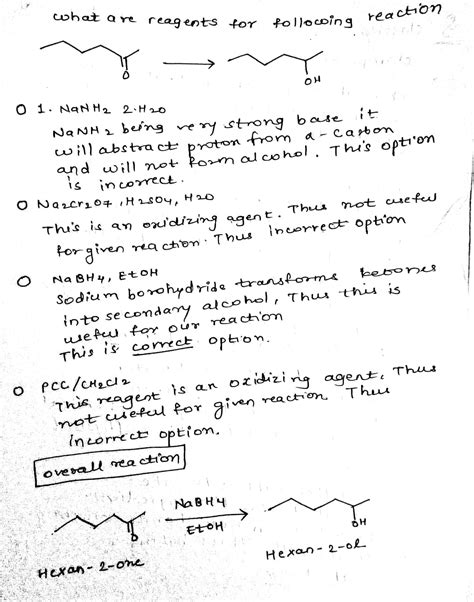 what are reagents for following reaction
O
OH
1. NaNH2 2. H2O
NaNH2 being very strong base it
will abstract proton from α-carbon
and will not form alcohol. This option
is incorrect.
Na2Cr2O7, H2SO4, H2O
This is an oxidizing agent. Thus not useful
for given reaction. Thus Incorrect option
NaBH4, EtOH
Sodium borohydride transforms ketones
into secondary alcohol, Thus this is
useful for our reaction
This is correct option.
PCC/CH2Cl2
This reagent is an oxidizing agent, Thus
not useful for given reaction Thus
Incorrect option.
overall reaction
NaBH4
EtOH
O
OH
Hexan-2-one
Hexan-2-ol